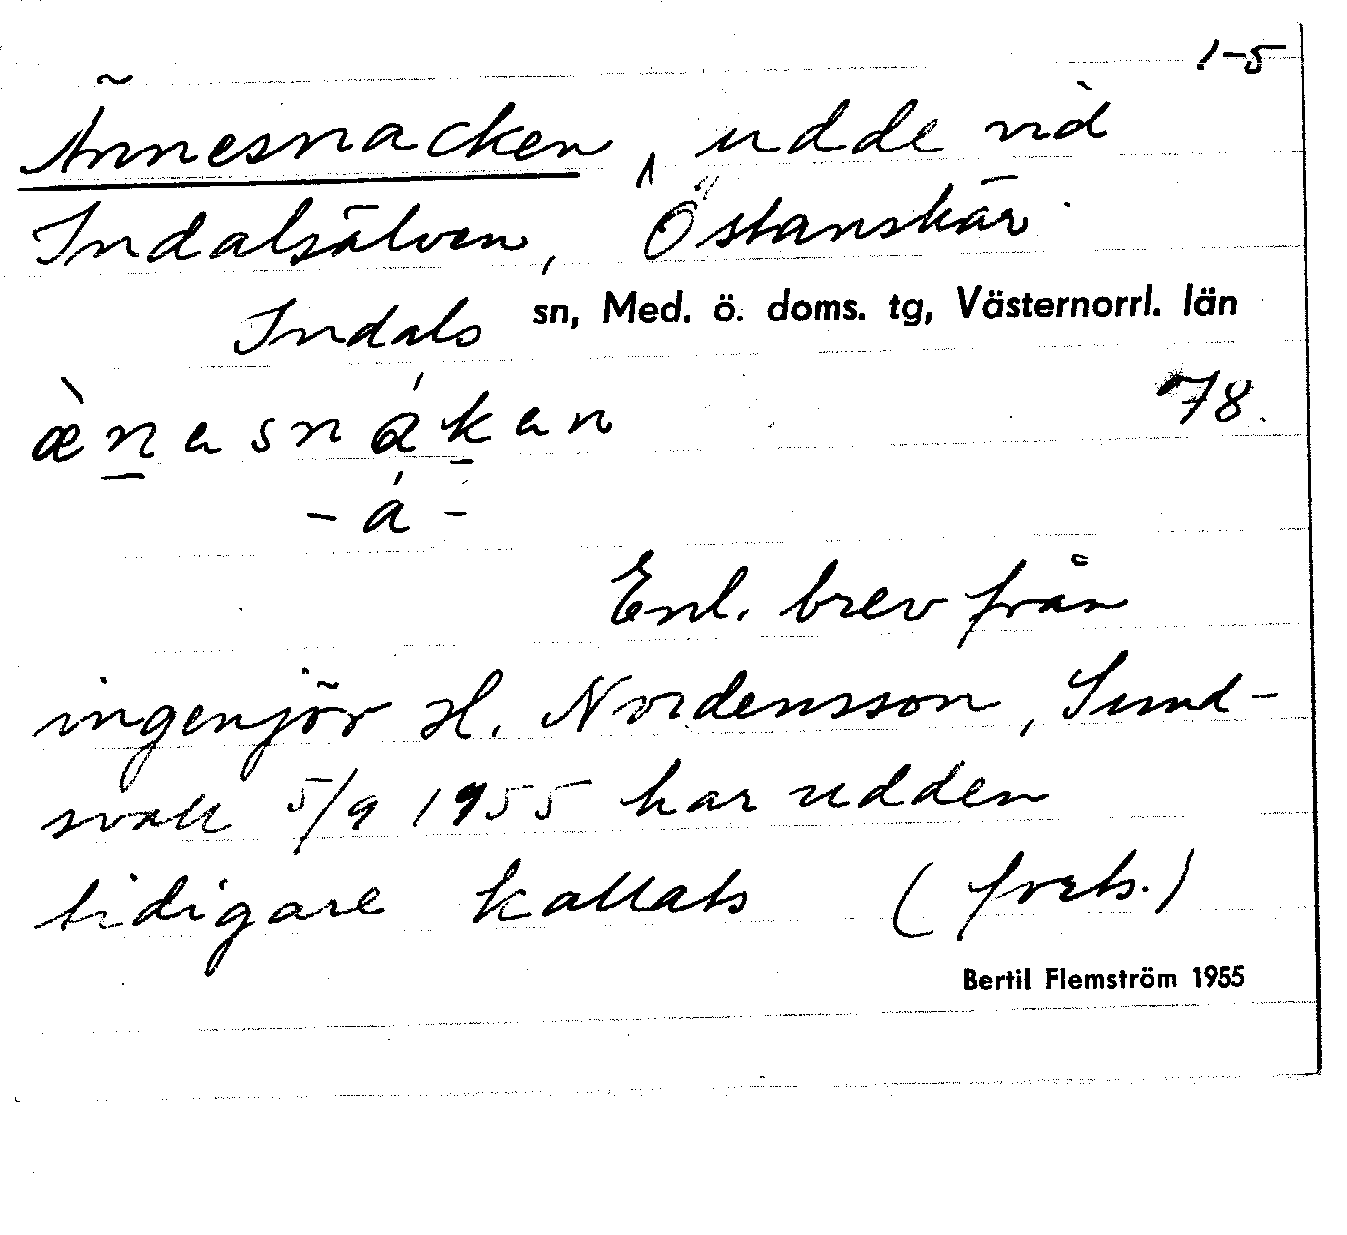 1-5
Ännesnacken, udde vid
Indalsälven, Östanskär
Indals sn, Med. ö. doms. tg, Västernorrl. län
æ̀n̲asnák̲an 78.
-á-
Enl. brev från
ingenjör H. Nordensson, Sund-
svall 5/9 1955 har udden
tidigare kallats (forts.)
Bertil Flemström 1955